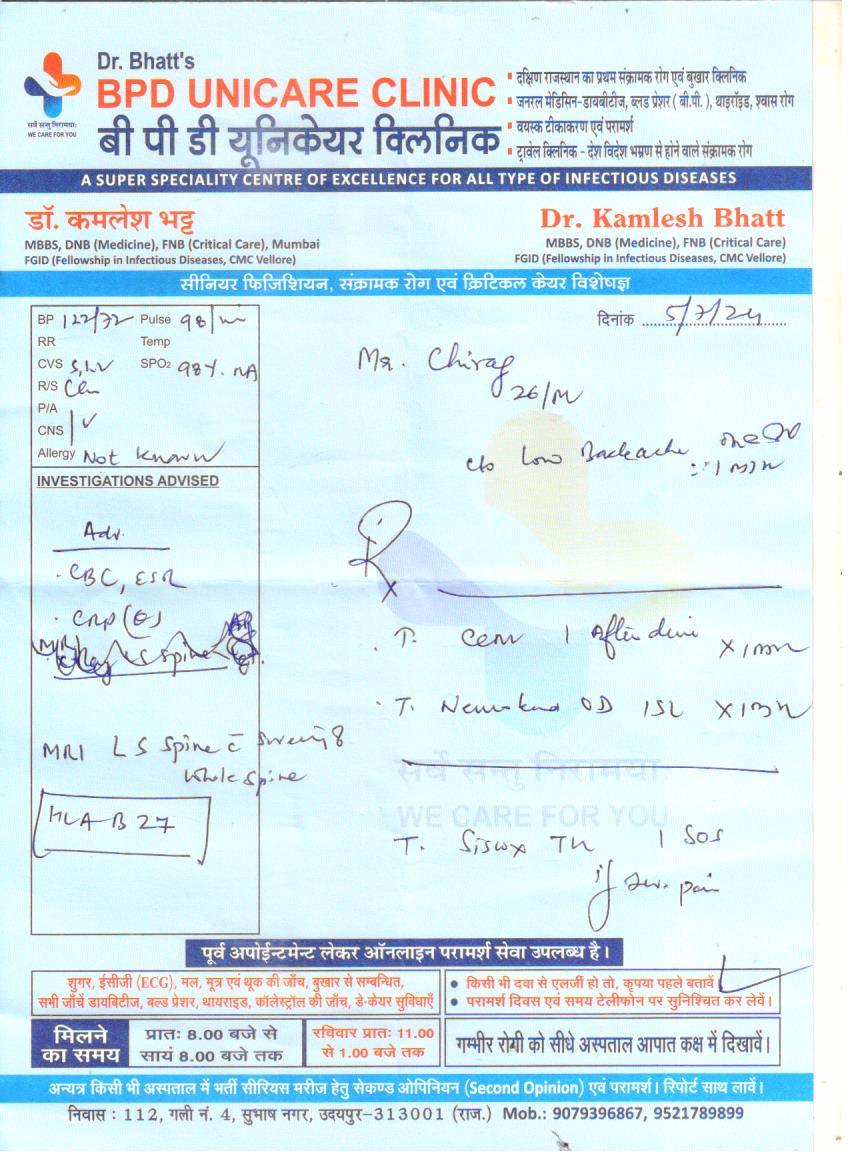 Dr. Bhatt's
BPD UNICARE CLINIC
बी पी डी यूनिकेयर क्लिनिक
सर्वे सन्तु निरामयाः
WE CARE FOR YOU
दक्षिण राजस्थान का प्रथम संक्रामक रोग एवं बुखार क्लिनिक
जनरल मेडिसिन-डायबीटीज, ब्लड प्रेशर ( बी.पी. ), थाइरॉइड, श्वास रोग
वयस्क टीकाकरण एवं परामर्श
ट्रावेल क्लिनिक - देश विदेश भम्रण से होने वाले संक्रामक रोग
A SUPER SPECIALITY CENTRE OF EXCELLENCE FOR ALL TYPE OF INFECTIOUS DISEASES
डॉ. कमलेश भट्ट
MBBS, DNB (Medicine), FNB (Critical Care), Mumbai
FGID (Fellowship in Infectious Diseases, CMC Vellore)
Dr. Kamlesh Bhatt
MBBS, DNB (Medicine), FNB (Critical Care)
FGID (Fellowship in Infectious Diseases, CMC Vellore)
सीनियर फिजिशियन, संक्रामक रोग एवं क्रिटिकल केयर विशेषज्ञ
BP 122/72 Pulse 98/min
RR Temp
CVS SPO2 98%
R/S
P/A
CNS
Allergy Not Known
दिनांक 5/7/24
Mr. Chirag
26/M
c/o Low Backache
INVESTIGATIONS ADVISED
Adv.
CBC, ESR
CRP (Q)
MRI LS Spine c̄ screening
whole spine
HLA B 27
Rx
T. 1 After
T. OD
T. 1 SOS
if sev. pain
सर्वे सन्तु निरामयाः
WE CARE FOR YOU
पूर्व अपोईन्टमेन्ट लेकर ऑनलाइन परामर्श सेवा उपलब्ध है।
शुगर, ईसीजी (ECG), मल, मूत्र एवं थूक की जाँच, बुखार से सम्बन्धित,
सभी जाँचें डायबिटीज, बल्ड प्रेशर, थायराइड, कॉलेस्ट्रॉल की जाँच, डे-केयर सुविधाएँ
किसी भी दवा से एलर्जी हो तो, कृपया पहले बतावें
परामर्श दिवस एवं समय टेलीफोन पर सुनिश्चित कर लेवें।
मिलने का समय
प्रातः 8.00 बजे से
सायं 8.00 बजे तक
रविवार प्रातः 11.00
से 1.00 बजे तक
गम्भीर रोगी को सीधे अस्पताल आपात कक्ष में दिखावें।
अन्यत्र किसी भी अस्पताल में भर्ती सीरियस मरीज हेतु सेकण्ड ओपिनियन (Second Opinion) एवं परामर्श। रिपोर्ट साथ लावें।
निवास : 112, गली नं. 4, सुभाष नगर, उदयपुर-313001 (राज.) Mob.: 9079396867, 9521789899